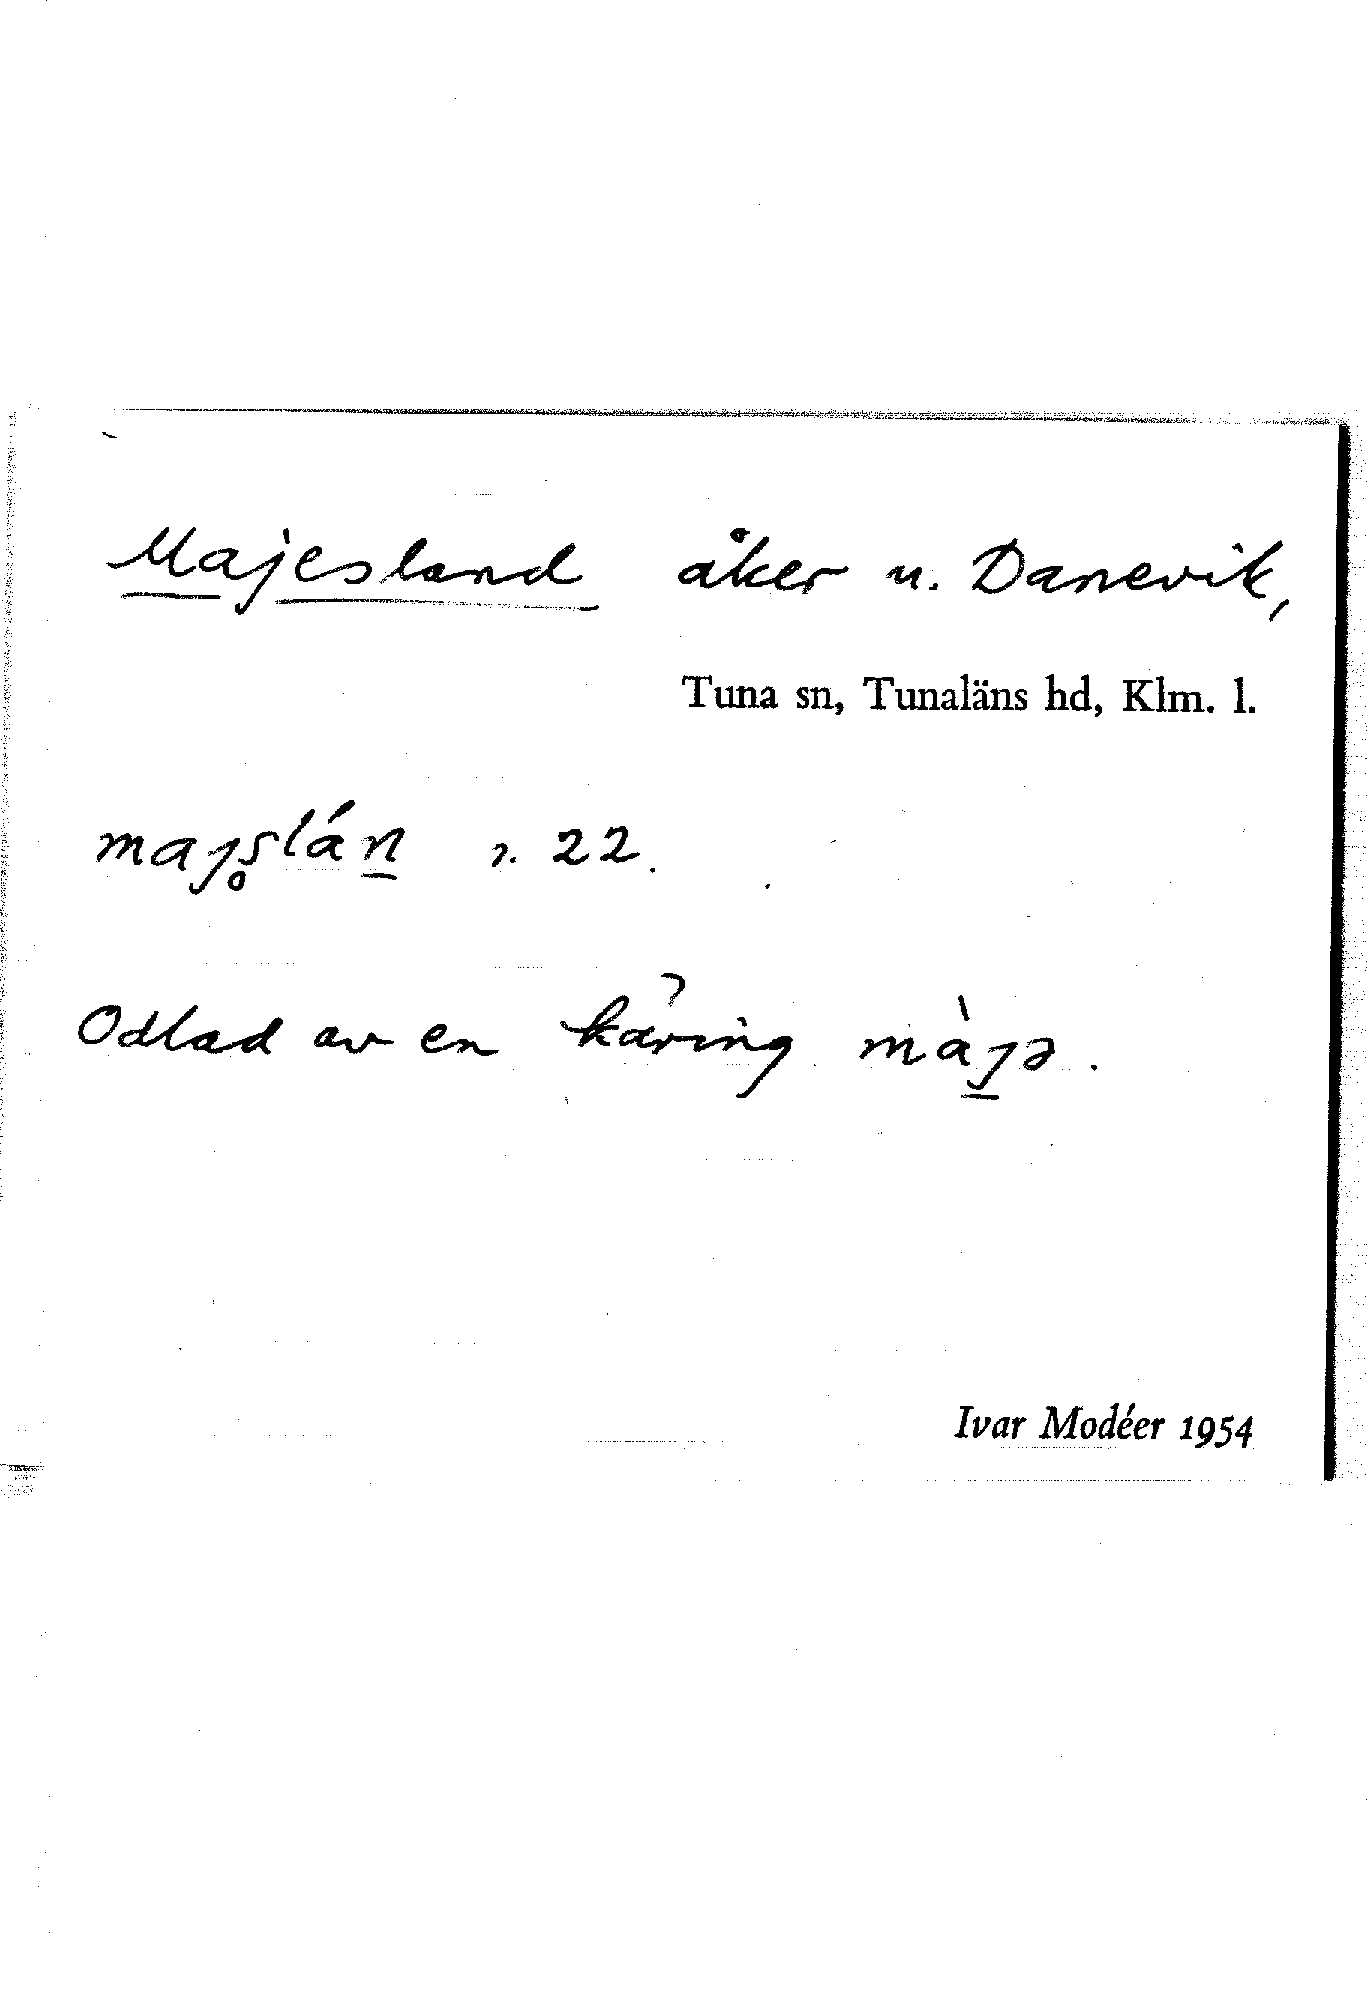 Majesland åker u. Danevik,
Tuna sn, Tunaläns hd, Klm. l.
maȷs̥lán̲ r. 22.
Odlad av en käring màȷ̲ə.
Ivar Modéer 1954